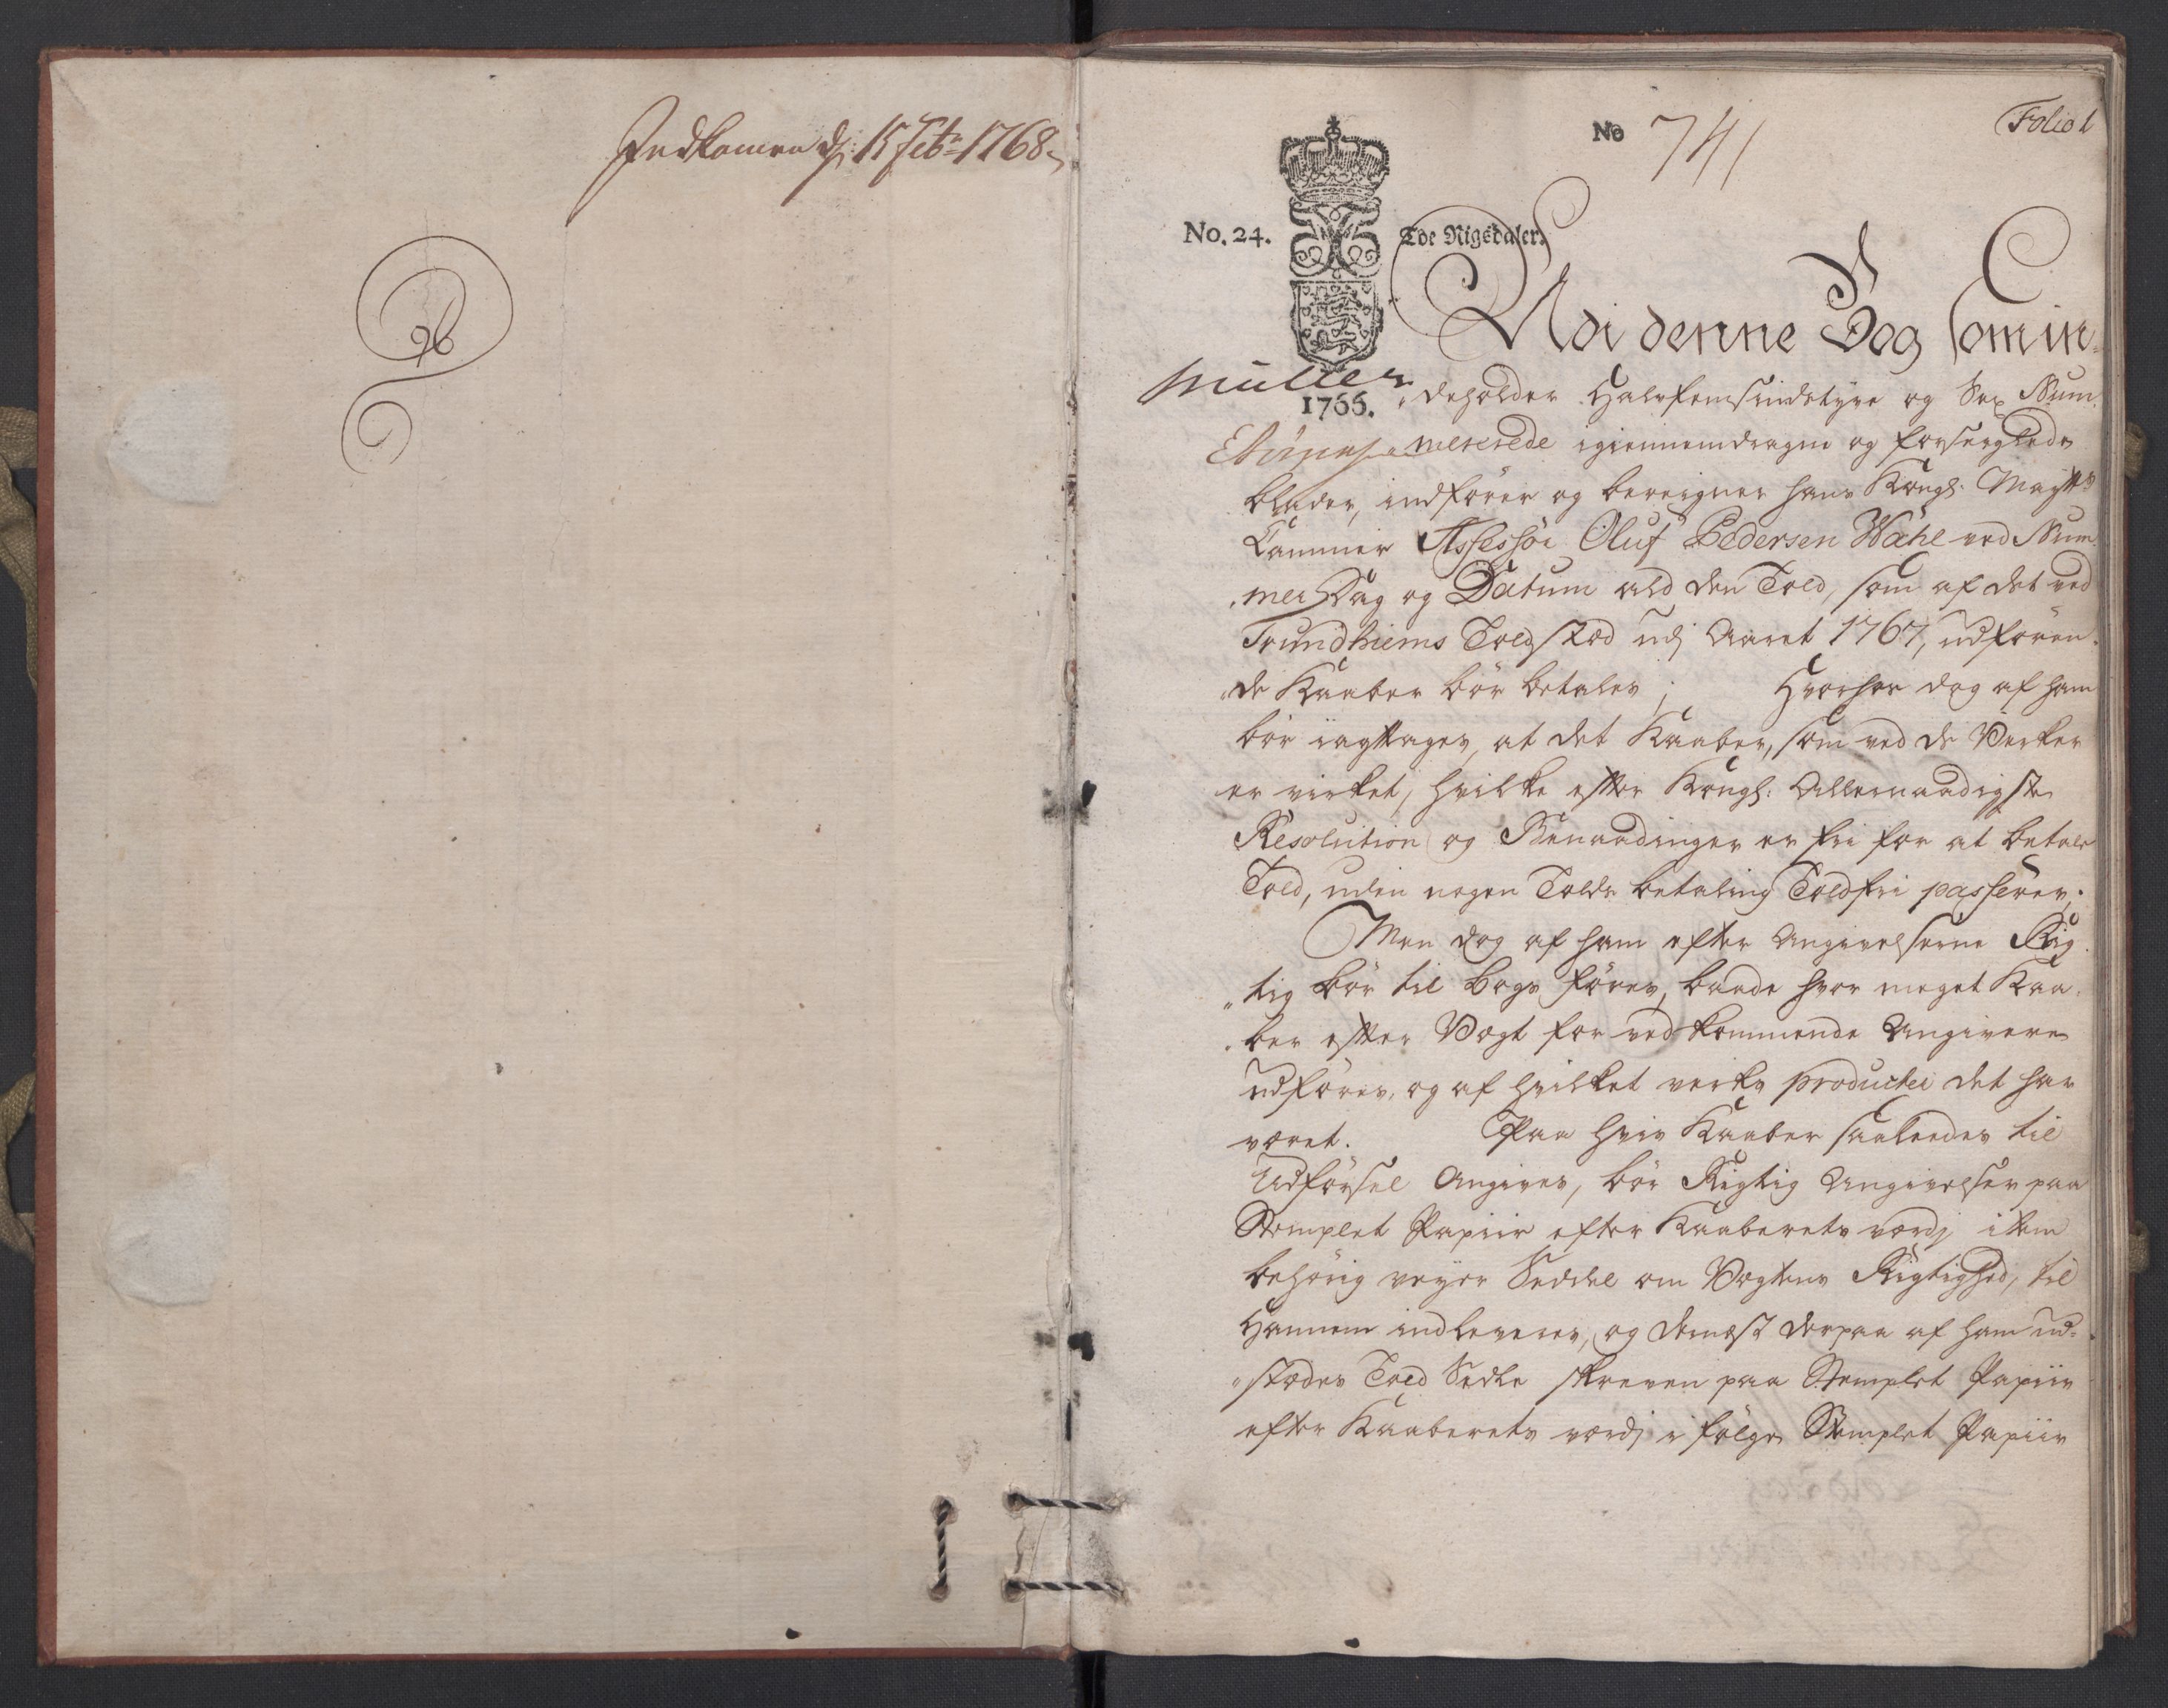 Indkommen d: 15 Febr: 1768.
96
Folio 1
No 741
No. 24.
Toe Rigsdaler.
Udi denne Bog som in-
Müller
1766.
deholder Halvfemsindstyve og Sex Num-
merede igiennemdragne og forseglede
blader, indfører og bereigner hans Kongl: Maytts
Cammer Assessor Oluf Pedersen Wæhle ved Num-
mer Dag og Datum ald den Told, som af det ved
Trundhiems Toldstæd udj Aaret 1767, udføren-
de Kaaber bør betales; Hvorhos dog af ham
bør iagttages, at det Kaaber, som ved de Værker
er virket, hvilke efter Kongl: Allernaadigste
Resolution og Benaadinger er fri for at betale
Told, uden nogen Tolds betaling Toldfri passeres;
Men dog af ham efter Angivelserne Rig-
tig bør til bogs føres, baade hvor meget Kaa-
ber efter Vægt for vedkommende Angivere
udføres, og af hvilket verks producter det har
været. Paa hvis Kaaber saaledes til
Udførsel Angives, bør Rigtig Angivelser paa
Stemplet Papiir efter Kaaberets værdj item
behørig veyer Seddel om Vægtens Rigtighed, til
Hannem indleveres, og dernæst derpaa af ham ud-
stædes Told Sedle skreven paa Stemplet Papiir
efter Kaaberets værdj i følge Stemplet Papiir